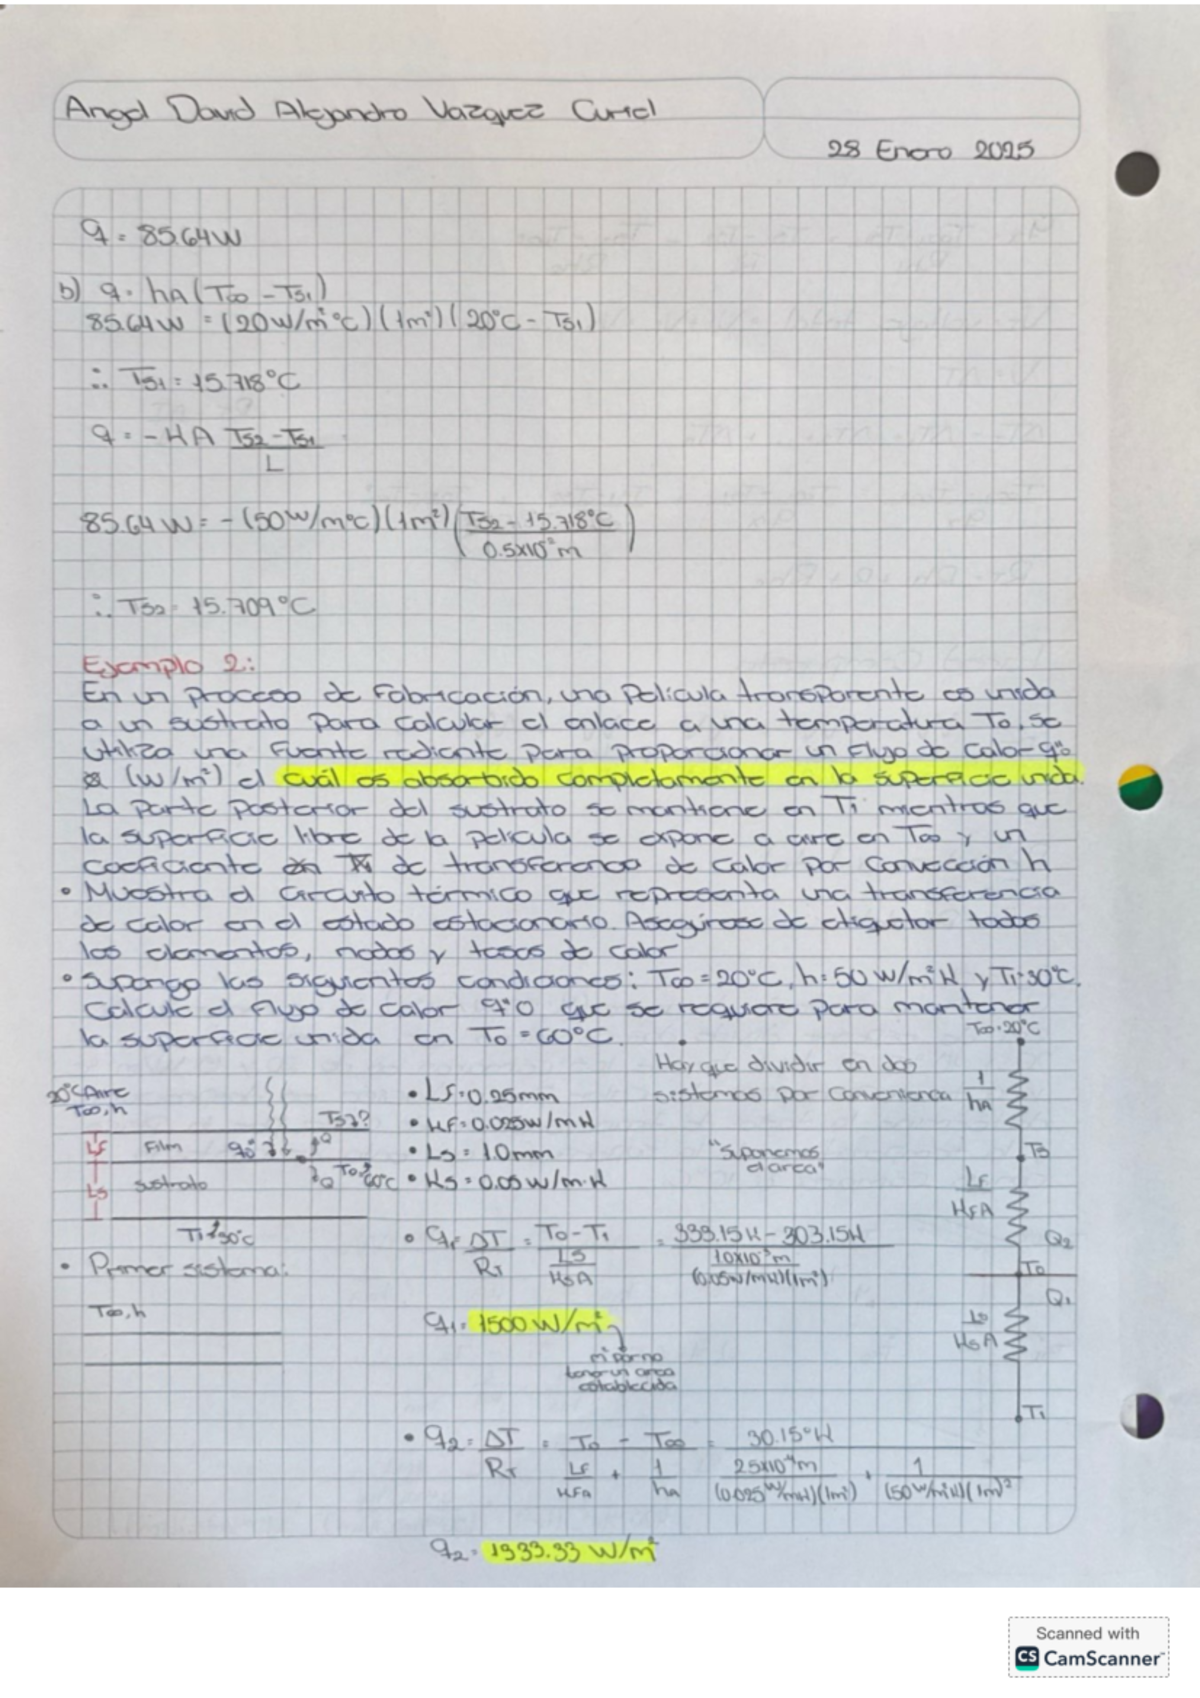 Angel David Alejandro Vazquez Curiel
28 Enero 2025
q = 85.64W
b) q = hA(T∞ - Ts1)
85.64W = (20W/m²°C)(1m²)(20°C - Ts1)
∴ Ts1 = 15.718°C
q = -KA Ts2-Ts1
L
85.64W = -(50W/m°C)(1m²)(Ts2 - 15.718°C
0.5x10⁻²m)
∴ Ts2 = 15.709°C
Ejemplo 2:
En un proceso de Fabricación, una Película transparente es unida
a un sustrato para calcular el enlace a una temperatura To, se
utiliza una fuente radiante para proporcionar un flujo de calor q"o
(W/m²) el cuál es absorbido completamente en la superficie unida.
La parte posterior del sustrato se mantiene en Ti mientras que
la superficie libre de la película se expone a aire en T∞ y un
coeficiente de transferencia de calor por convección h
• Muestra el circuito térmico que representa una transferencia
de calor en el estado estacionario. Asegúrese de etiquetar todos
los elementos, nodos y tasas de calor
• Suponga las siguientes condiciones: T∞=20°C, h=50 W/m²K y Ti=30°C.
Calcule el flujo de calor q"o que se requiere para mantener
la superficie unida en To = 60°C.
T∞=20°C
Hay que dividir en dos
sistemas por conveniencia
1
hA
20°C Aire
T∞,h
Ts?
Lf
Film
q"o
Ls
sustrato
To 60°C
T1 30°C
• Lf=0.25mm
• Kf=0.025W/mK
• Ls=1.0mm
• Ks=0.05W/m·K
"Suponemos
el area"
Ts
Lf
KfA
Q2
To
Q1
Ls
KsA
T1
• q1 = ΔT = To-T1 = 333.15K - 303.15K
RT Ls 1.0x10⁻³m
KsA (0.05W/mK)(1m²)
• Primer sistema:
T∞,h
q1 = 1500 W/m²
tener un area
establecida
• q2 = ΔT = To - T∞ = 30.15°K
RT Lf + 1 2.5x10⁻⁴m + 1
KfA hA (0.025W/mK)(1m²) (50W/m²K)(1m)²
q2 = 1333.33 W/m²
Scanned with
CS CamScanner